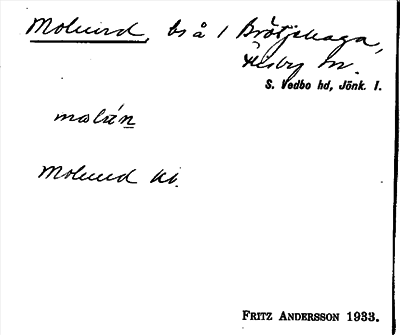 Molund, bs å / Brötjehaga,
Åsby sn.
S. Vedbo hd, Jönk. l.
molún
Molund kb.
FRITZ ANDERSSON 1933.